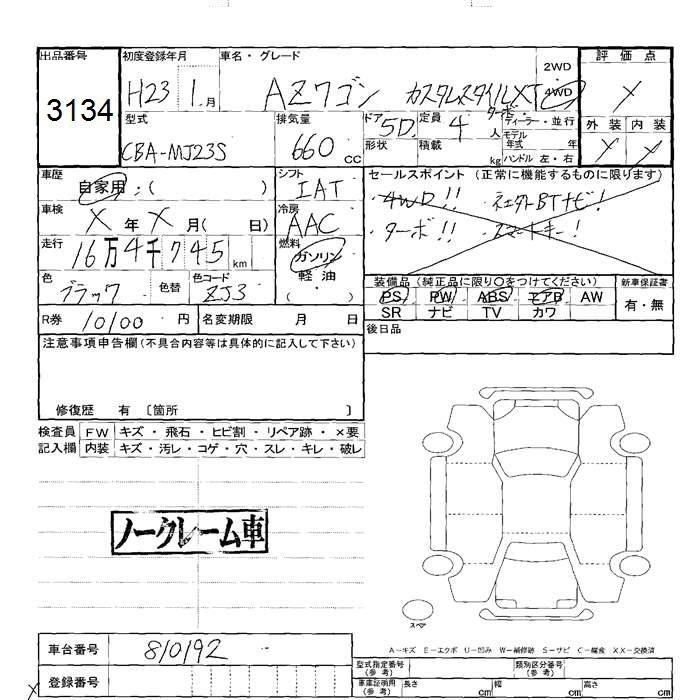 出品番号 初度登録年月 車名・グレード 2WD 評価点
3134 H23 1月 AZワゴン カスタムスタイルXT 4WD
ターボ
型式 排気量 ドア 定員 ディーラー・並行 外装 内装
CBA-MJ23S 660 CC 5D 4人 モデル年式 年
形状 積載 kg ハンドル 左・右
車歴 シフト セールスポイント (正常に機能するものに限ります)
自家用:( ) IAT
車検 X年X月( 日) 冷房 AAC ・4WD!!
走行 16万4千745km 燃料 ガソリン ・ターボ!! ・スマートキー!
軽油
( )
色 ブラック 色替 色コード ZJ3 装備品 (純正品に限り○をつけてください) 新車保証書
PS PW ABS エアB AW 有・無
SR ナビ TV カワ
R券 10100 円 名変期限 月 日 後日品
注意事項申告欄(不具合内容等は具体的に記入して下さい)
修復歴 有 〔箇所 〕
検査員 FW キズ・飛石・ヒビ割・リペア跡・×要
記入欄 内装 キズ・汚レ・コゲ・穴・スレ・キレ・破レ
ノークレーム車
スペア
A-キズ E-エクボ U-凹み W-補修跡 S-サビ C-腐食 XX-交換済
車台番号 810192 型式指定番号(参考) 類別区分番号(参考)
登録番号 車庫証明用(参考) 長さ cm 幅 cm 高さ cm